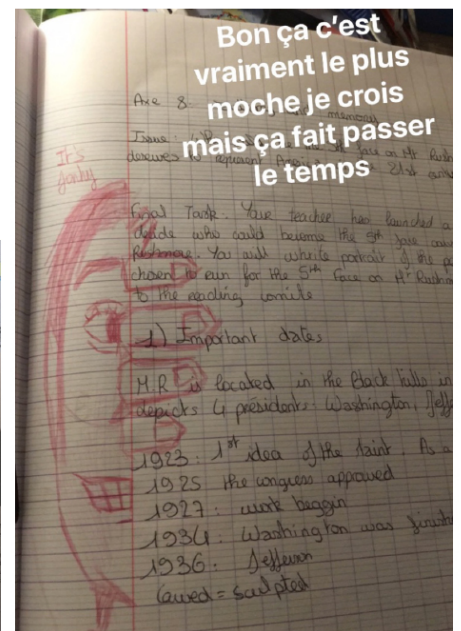 Bon ça c'est
vraiment le plus
moche je crois
mais ça fait passer
le temps
Axe 8 and memory
Issue: face on Mt Rush
deserves to represent America 21st
It's
Final Task. Your teacher has launched a
decide who could become the 5th face
Rushmore. You will write portrait of the
chosen to run for the 5th Face on Mt Rushm
to the reading comite
1) Important dates
M.R is located in the Black hills in
depicts 4 presidents: Washington, Jeff
1923: 1st idea of the As a
1925 the congress approwed
1927: work beggin
1934: Washington was finish
1936: Jefferson
Carwed = sculpted